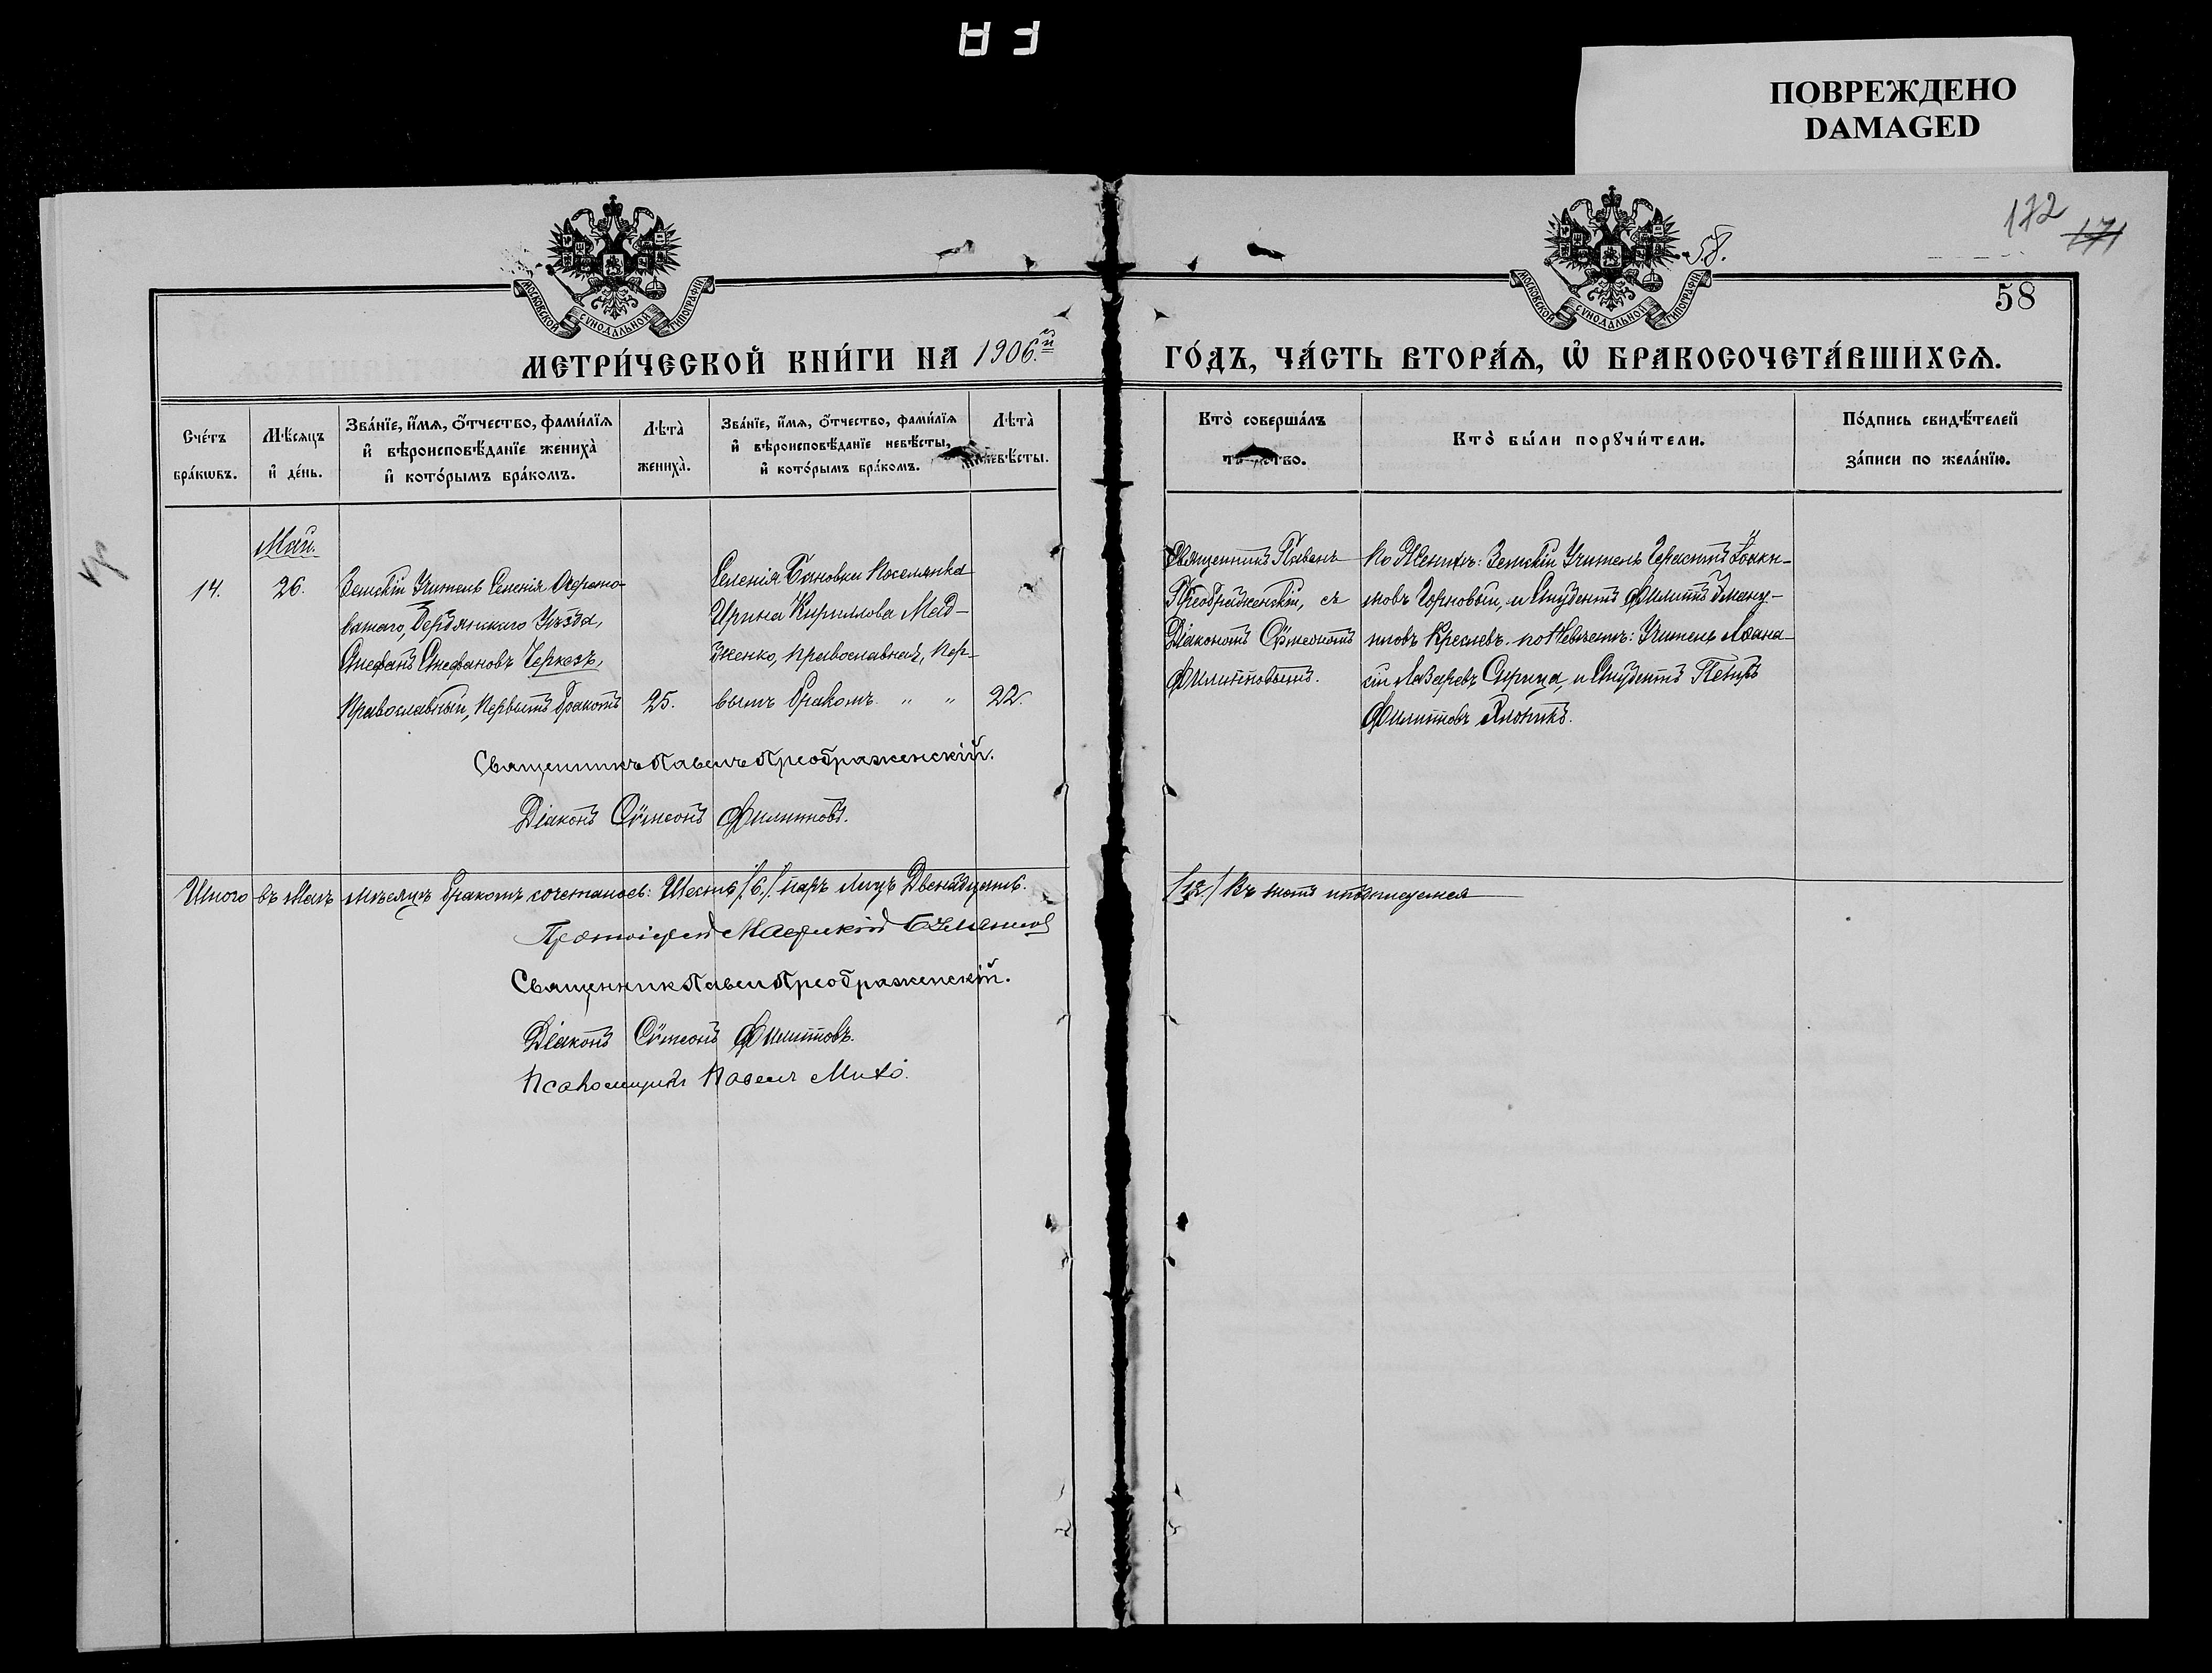 ПОВРЕЖДЕНО
DAMAGED
172
171
58.
58
МОСКОВСКОЙ СѴНОДАЛЬНОЙ ТИПОГРАФІИ
МОСКОВСКОЙ СѴНОДАЛЬНОЙ ТИПОГРАФІИ
МЕТРИ́ЧЕСКОЙ КНИ́ГИ НА 1906й
ГО́ДЪ, ЧА́СТЬ ВТОРА́Ѧ, Ѡ҆ БРАКОСОЧЕТА́ВШИХСѦ.
Сче́тъ
бра́кѡвъ.
Мѣ́сѧцъ
и҆ де́нь.
Зва́нїе, и҆́мѧ, ѻ҆́тчество, фами́лїѧ
и҆ вѣроисповѣ́данїе жениха̀
и҆ кото́рымъ бра́комъ.
Лѣта̀
жениха̀.
Зва́нїе, и҆́мѧ, ѻ҆́тчество, фами́лїѧ
и҆ вѣроисповѣ́данїе невѣ́сты,
и҆ кото́рымъ бра́комъ.
Лѣта̀
невѣ́сты.
Кто̀ соверша́лъ
та ство.
Кто̀ бы́ли порꙋчи́тели.
По́дпись свидѣ́телей
за́писи по жела́нїю.
Май.
14.
26.
Земскій Учитель Селенія Андреяно-
ватаго, Бердянскаго Уѣзда,
Стефанъ Стефановъ Черкезъ,
Православный, Первымъ бракомъ
25.
Селенія Бановки Поселянка
Ирина Кириллова Мад-
женко, православная, пер-
вымъ бракомъ. " "
22.
Священникъ Павелъ
Преображенскій, съ
Діакономъ Сѵмеономъ
Филипповымъ.
По Женихѣ: Земскій Учитель Герасимъ Іоаки-
мовъ Горновый, и Студентъ Филиппъ
повъ Кресьевъ. по Невѣстѣ: Учитель Аѳана-
сій Лазаревъ Стрица, и Студентъ Петръ
Филипповъ
Священникъ Павелъ Преображенскій.
Діаконъ Сѵмеонъ Филипповъ.
Итого въ Маѣ мѣсяцѣ бракомъ сочеталось: Шесть /6./ паръ лицъ Двенадцать.
/12/ Въ томъ и подписуемся
Протоіерей
Священник Павел Преображенскій.
Діаконъ Сѵмеонъ Филипповъ.
Псаломщикъ Павелъ Михо.